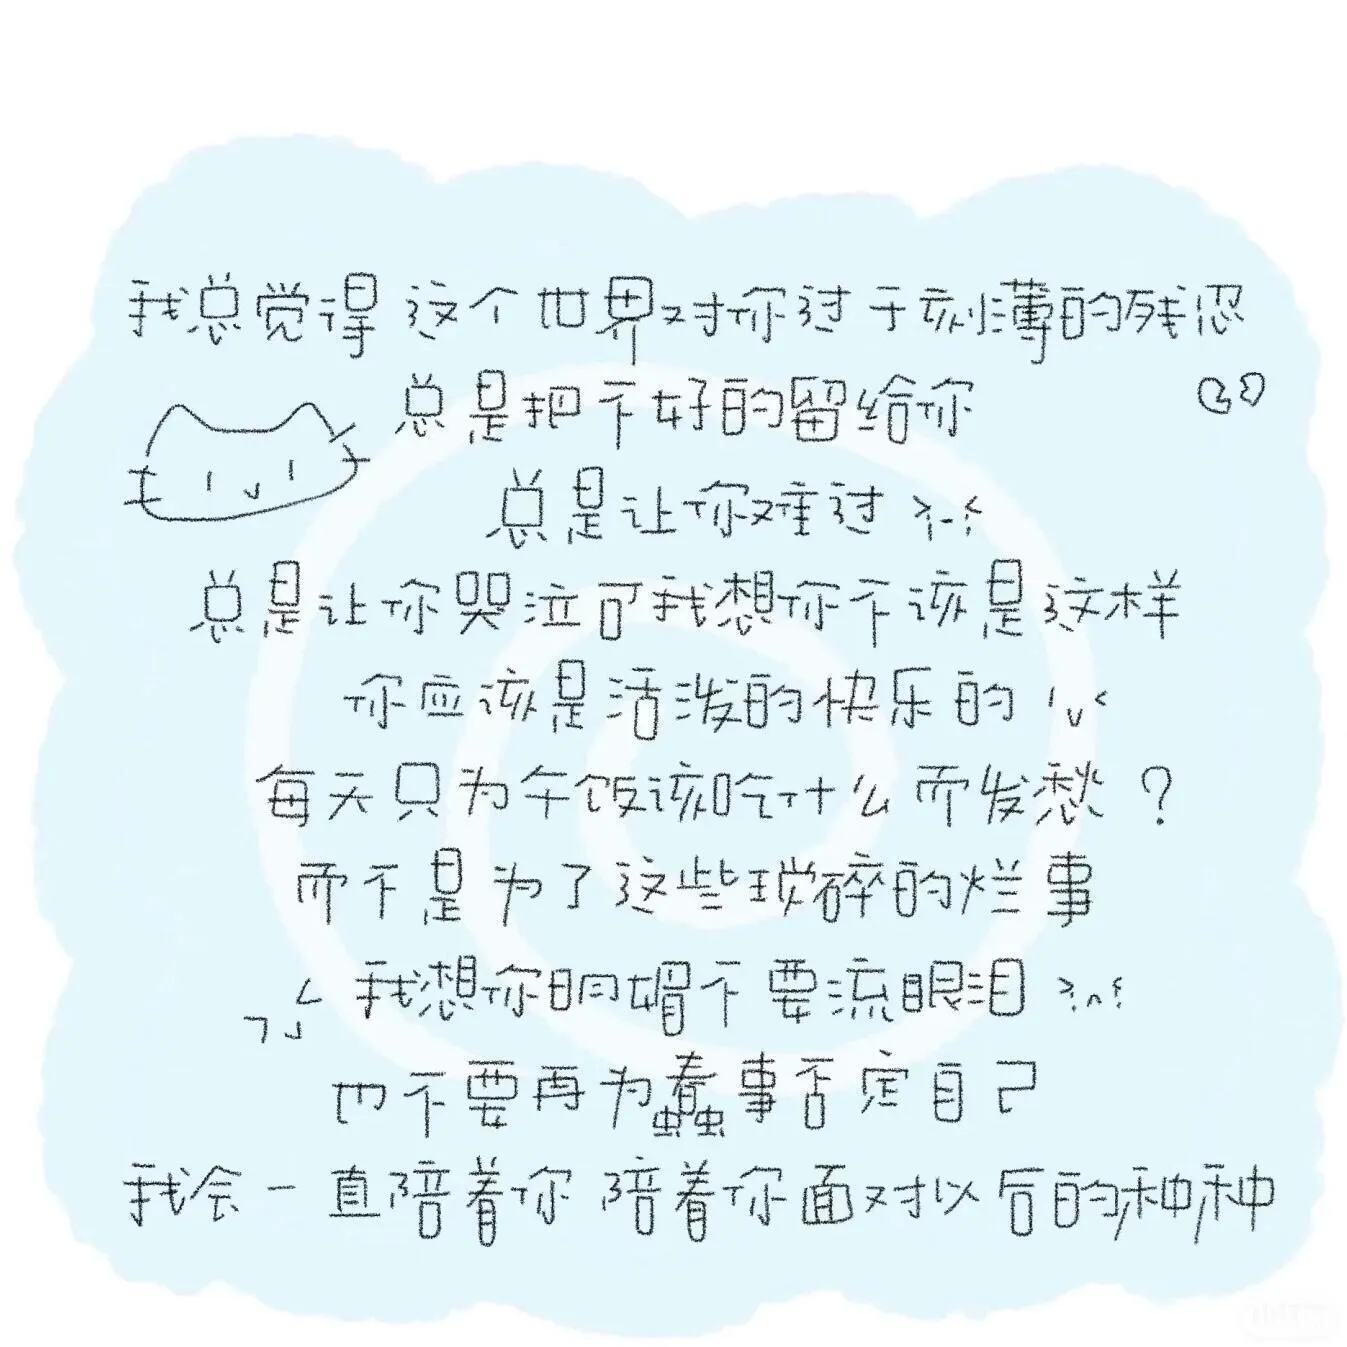 我总觉得这个世界对你过于刻薄的残忍
总是把不好的留给你
总是让你难过
总是让你哭泣可我想你不该是这样
你应该是活泼的快乐的
每天只为午饭该吃什么而发愁?
而不是为了这些琐碎的烂事
我想你明媚不要流眼泪
也不要再为蠢事否定自己
我会一直陪着你 陪着你面对以后的种种